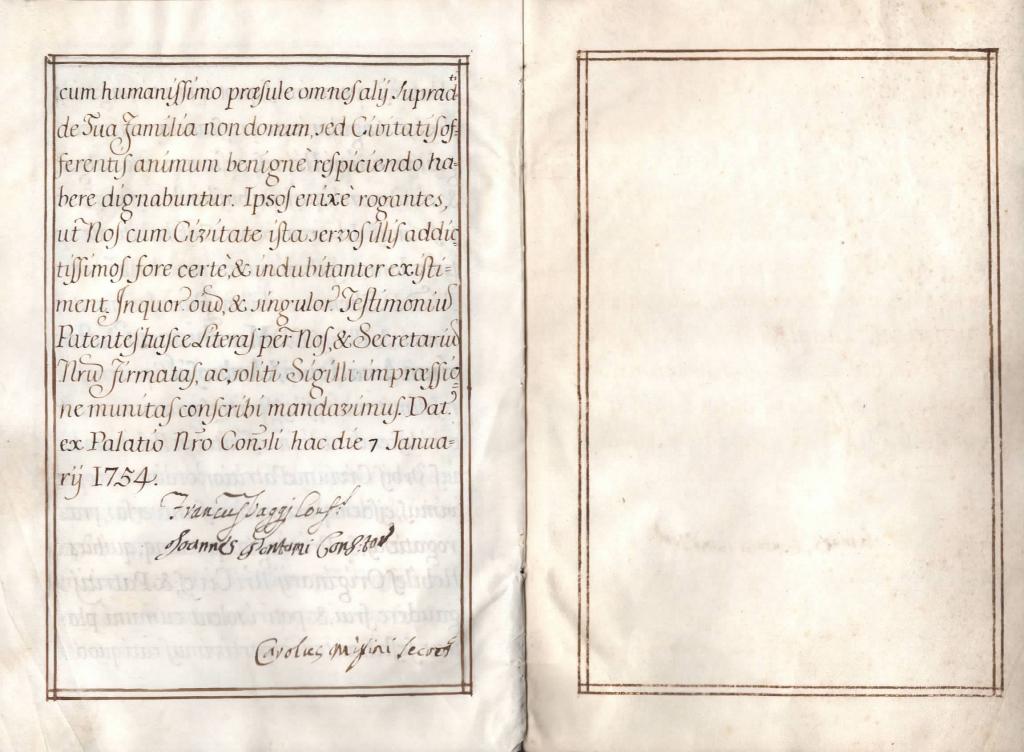 cum humanissimo præsule omnes alij suprad.ti
de Tua Familia non domum, sed Civitatis of-
ferentis animum benignè respiciendo ha-
bere dignabuntur. Ipsos enixè rogantes,
ut Nos cum Civitate ista servos illis addic-
tissimos fore certè, & indubitanter existi-
ment. In quor. oūd, & singulor. Testimoniū
Patentes hasce Literas per Nos, & Secretariū
Nrū firmatas, ac soliti Sigilli impressio-
ne munitas conscribi mandavimus. Dat.
ex Palatio Nro Cons̄li hac die 7 Janua-
rij 1754.
Joannes Consr̄
Carolus Missini Secret̄